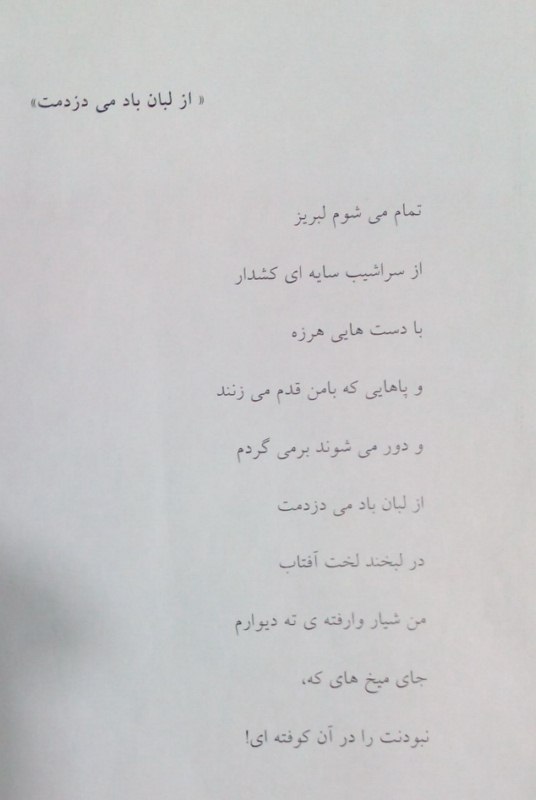 « از لبان باد می دزدمت»
تمام می شوم لبریز
از سراشیب سایه ای کشدار
با دست هایی هرزه
و پاهایی که بامن قدم می زنند
و دور می شوند برمی گردم
از لبان باد می دزدمت
در لبخند لخت آفتاب
من شیار وارفته ی ته دیوارم
جای میخ های که،
نبودنت را در آن کوفته ای!